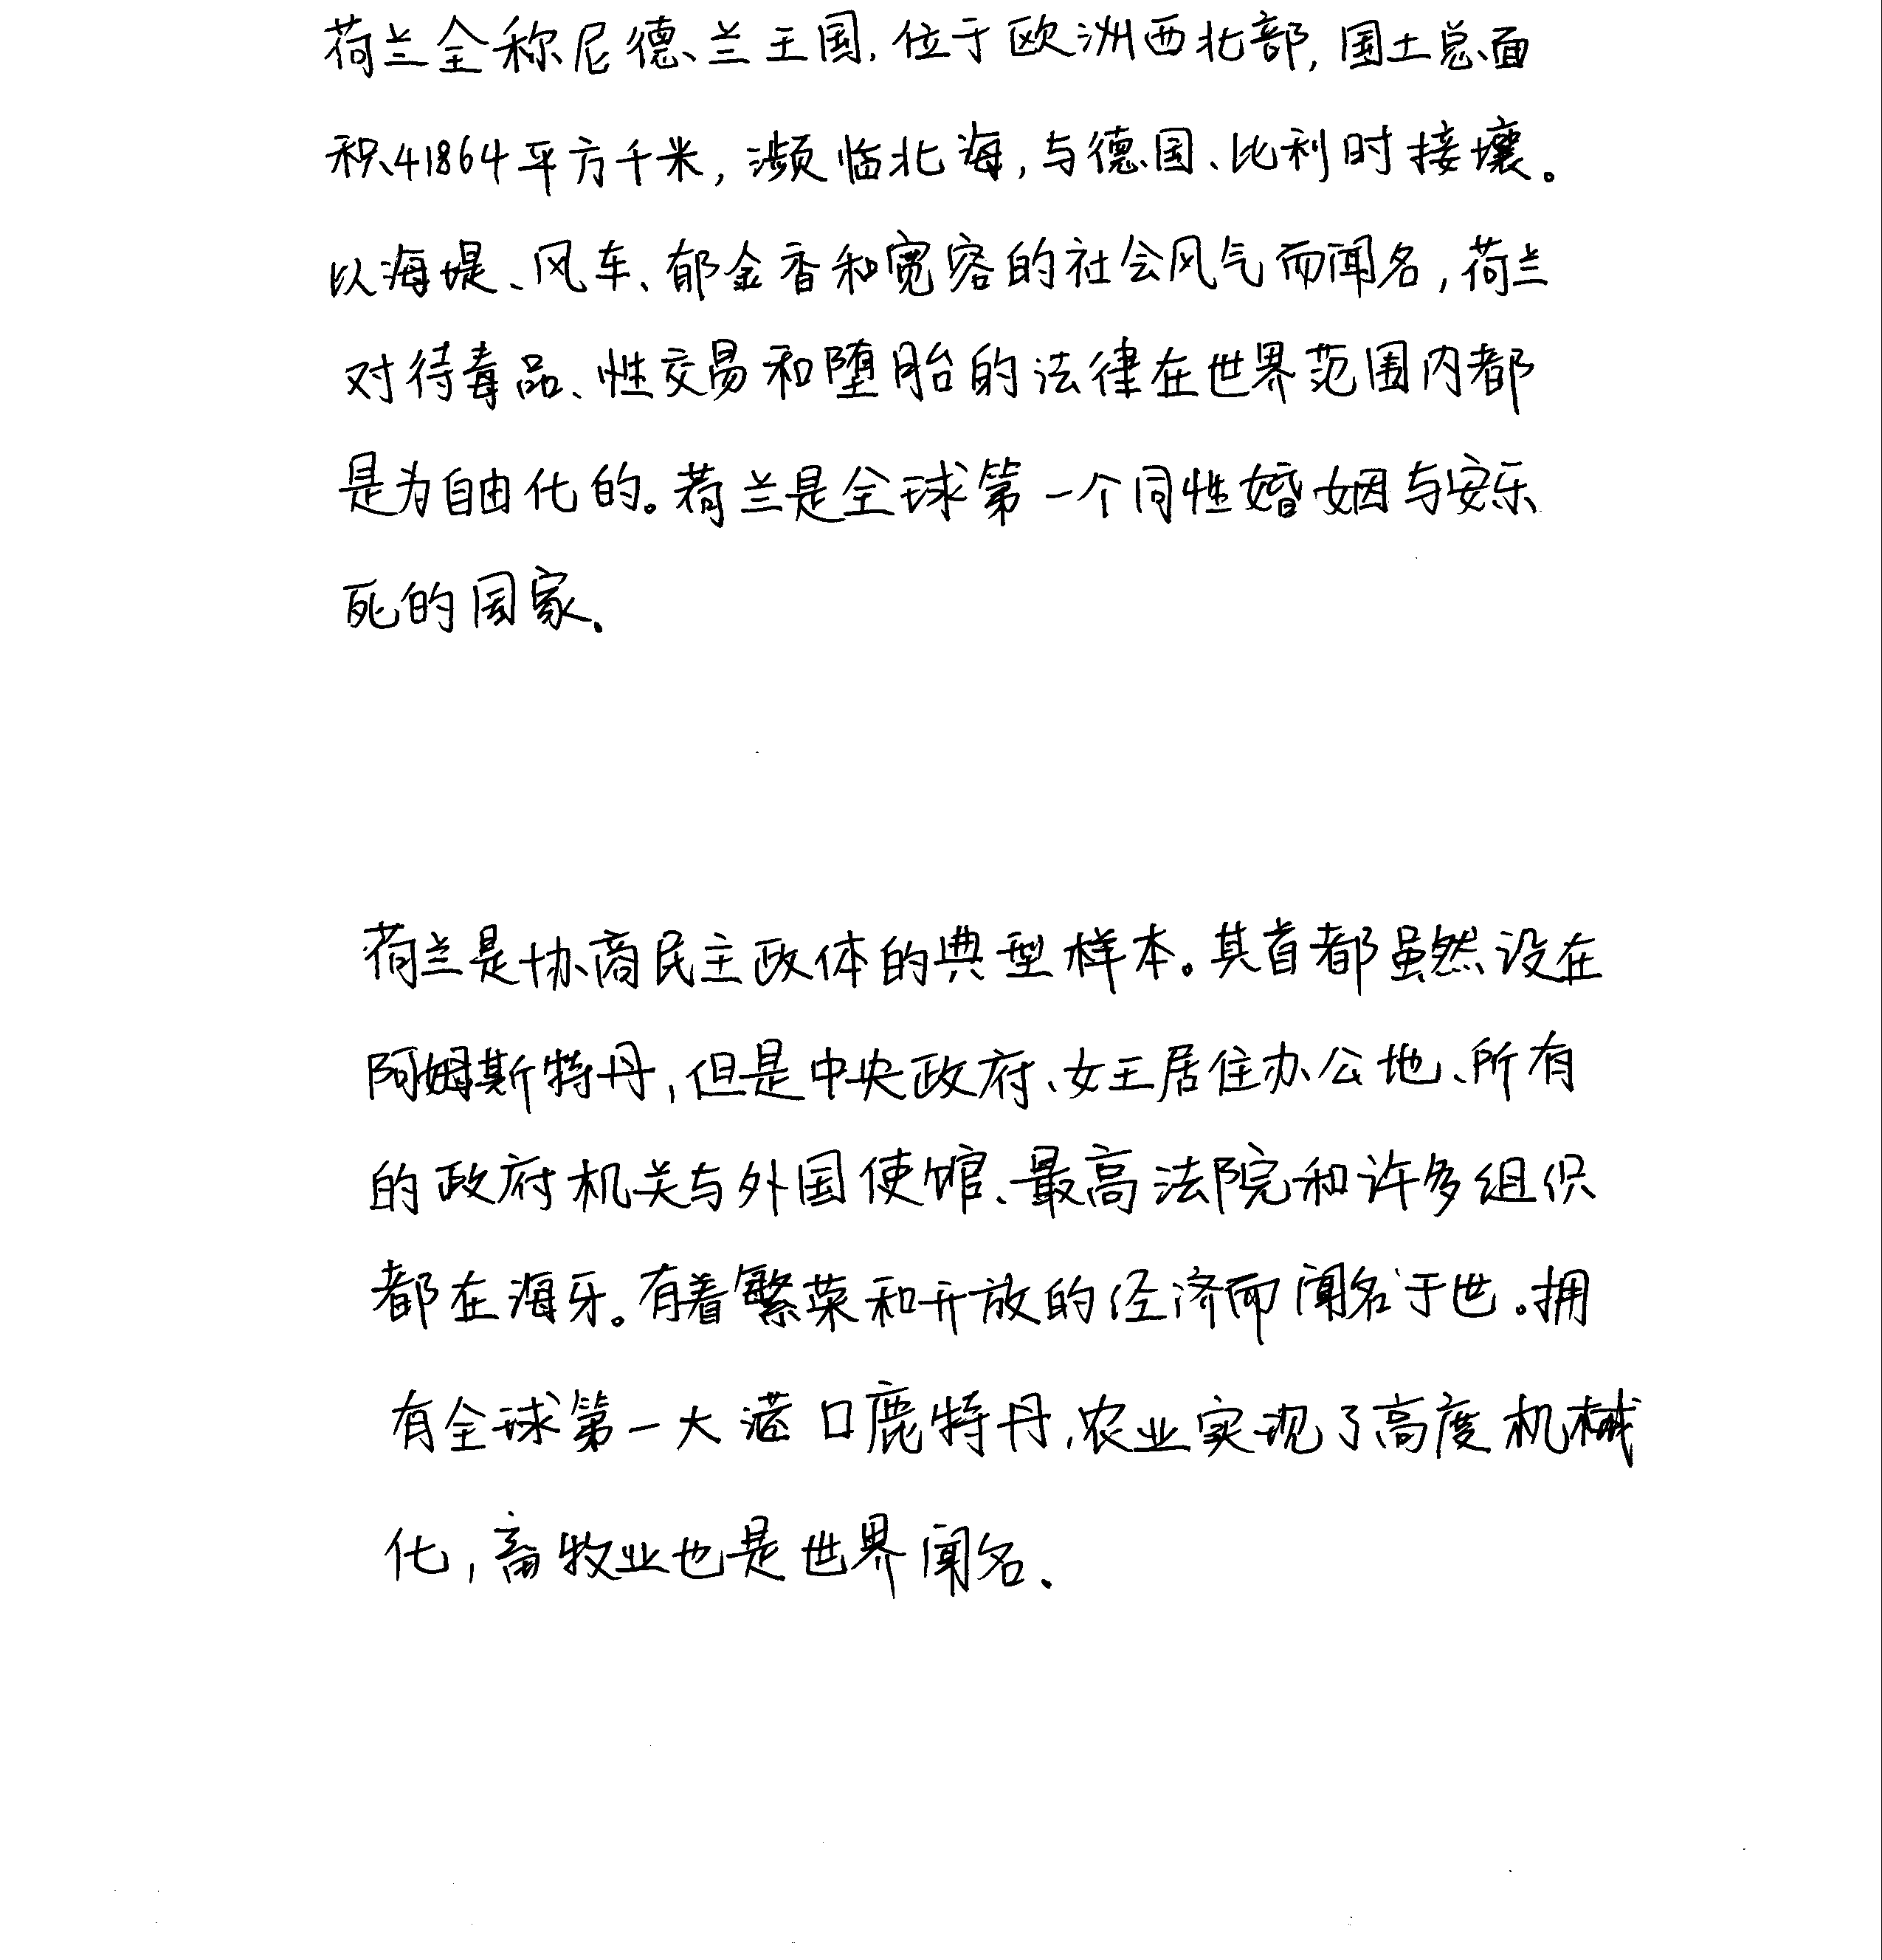 荷兰全称尼德兰王国,位于欧洲西北部,国土总面
积41864平方千米,濒临北海,与德国、比利时接壤。
以海堤、风车、郁金香和宽容的社会风气而闻名,荷兰
对待毒品、性交易和堕胎的法律在世界范围内都
是为自由化的。荷兰是全球第一个同性婚姻与安乐
死的国家.
荷兰是协商民主政体的典型样本。其首都虽然设在
阿姆斯特丹,但是中央政府、女王居住办公地、所有
的政府机关与外国使馆、最高法院和许多组织
都在海牙。有着繁荣和开放的经济而闻名于世。拥
有全球第一大港口鹿特丹,农业实现了高度机械
化,畜牧业也是世界闻名.